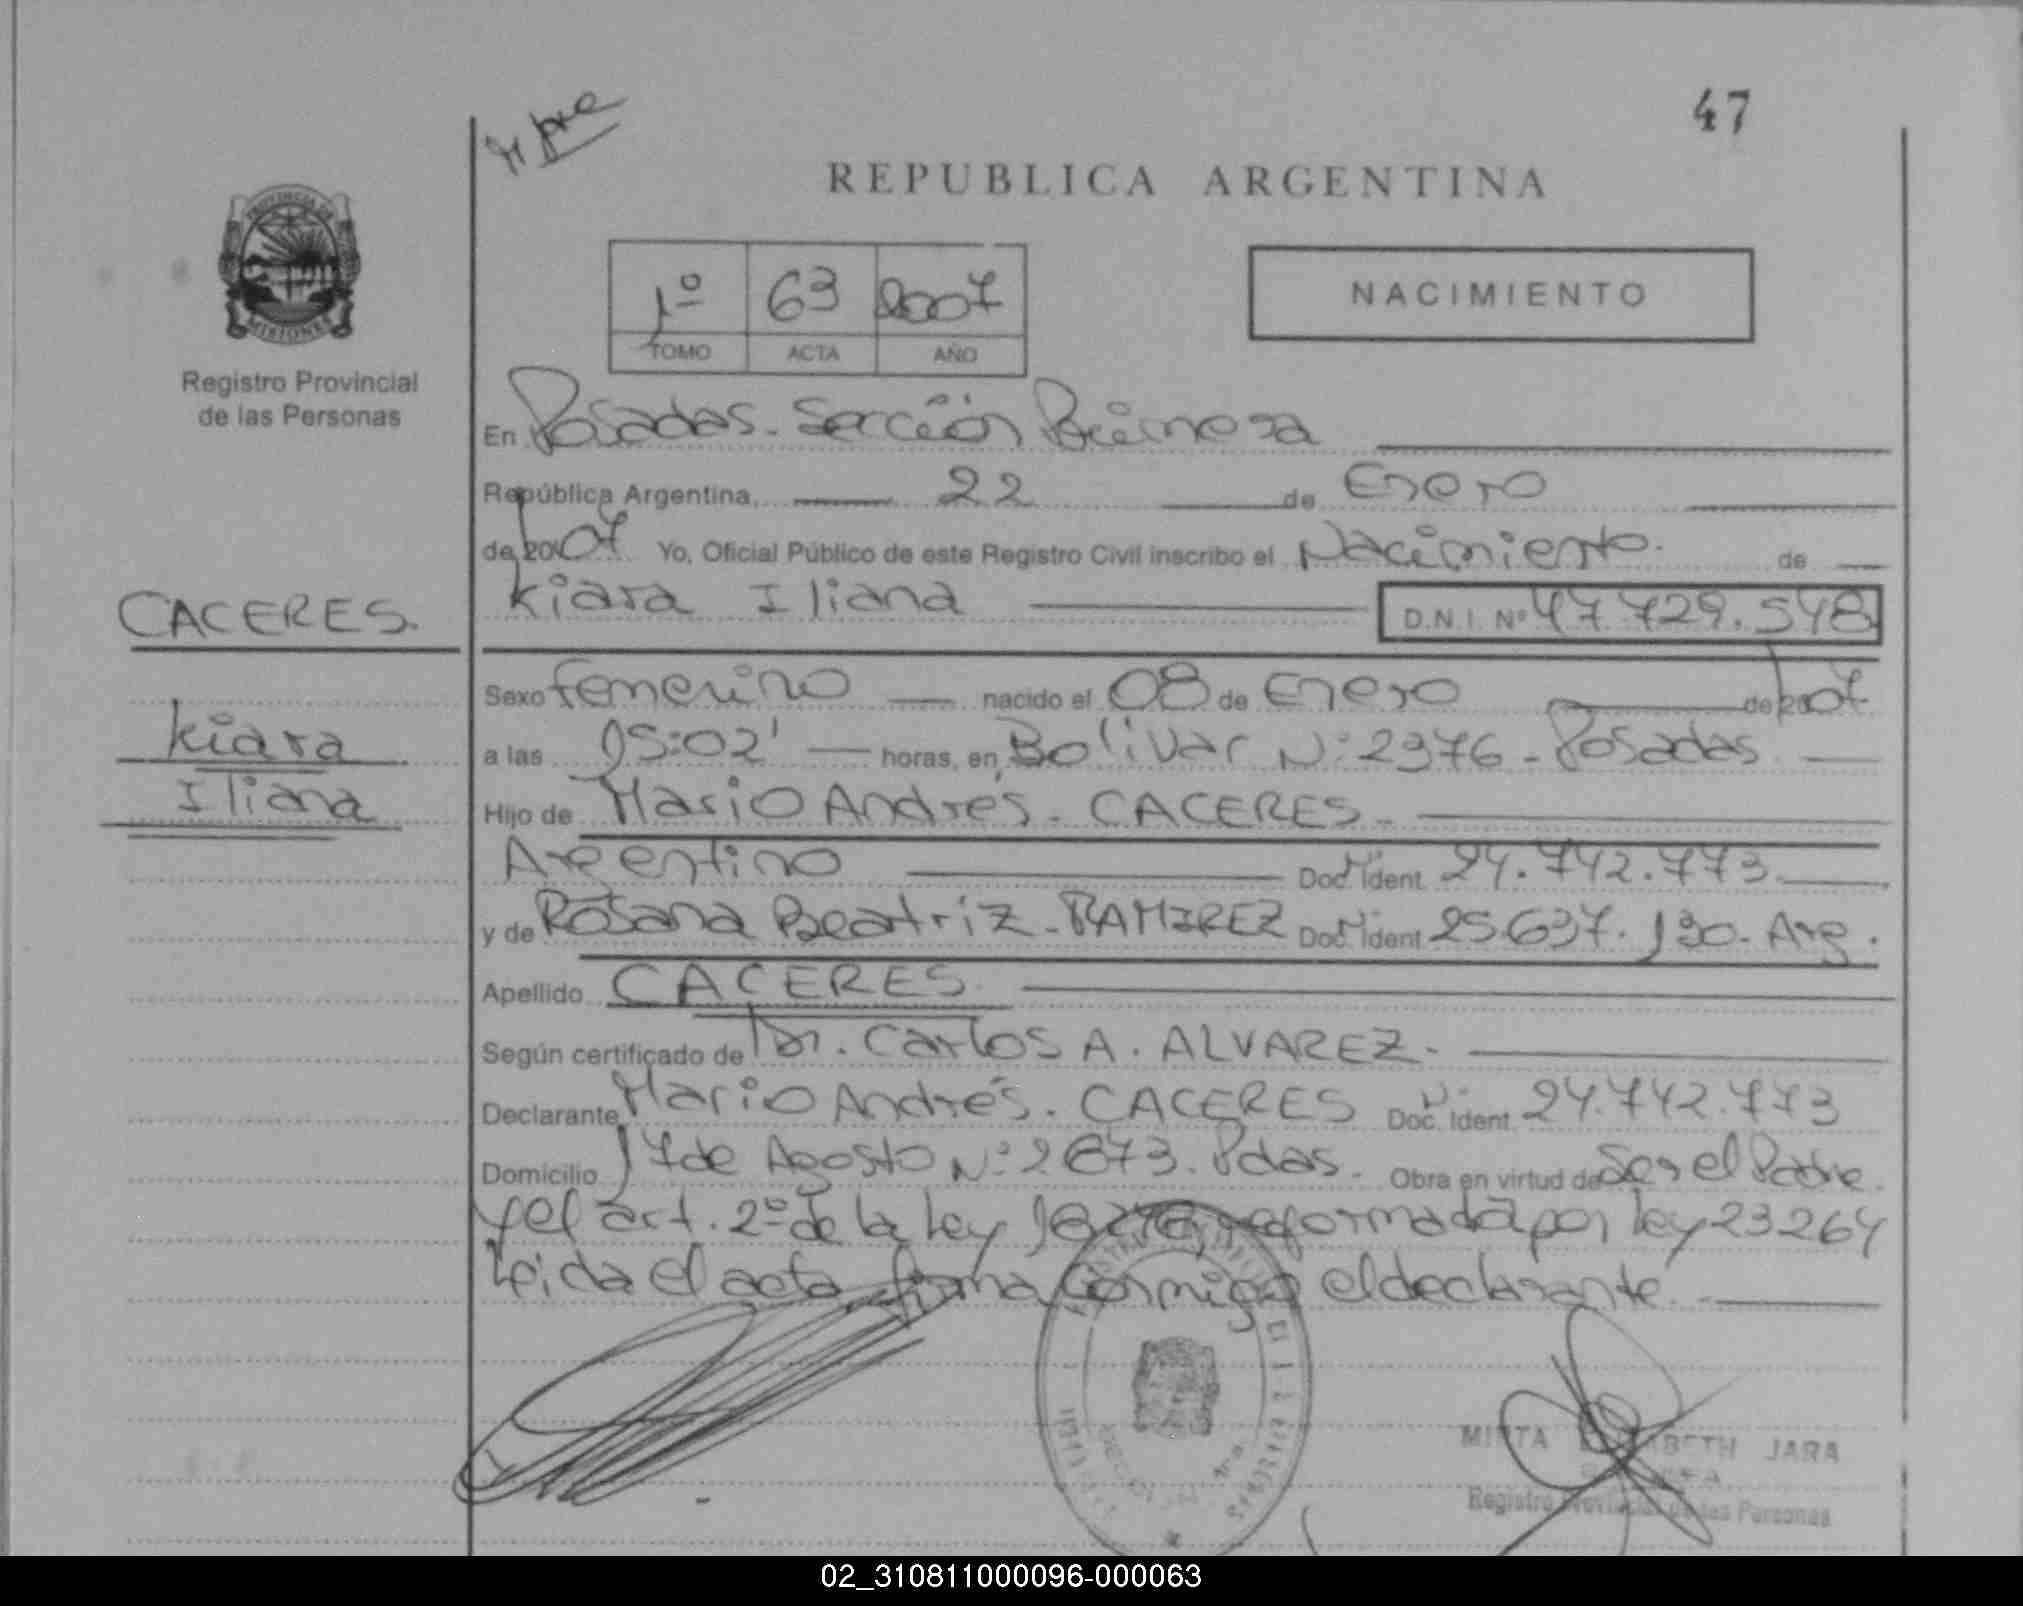 47
REPUBLICA ARGENTINA
PROVINCIA DE
MISIONES
Registro Provincial
de las Personas
1º 63 2007
TOMO ACTA AÑO
NACIMIENTO
En Posadas. Sección Primera
República Argentina, 22 de Enero
de 2007 Yo, Oficial Público de este Registro Civil inscribo el Nacimiento. de
CACERES.
Kiara Iliana D.N.I. Nº 47.729.548
Sexo femenino nacido el 08 de Enero de 2007
Kiara
Iliana
a las 15:02' horas, en Bolivar Nº: 2376 - Posadas
Hijo de Mario Andrés. CACERES.
Argentino Doc. Ident. 24.742.773.
y de Rosana Beatriz. RAMIREZ Doc. Ident. 25.637.130. Arg.
Apellido CACERES.
Según certificado de Dr. Carlos A. ALVAREZ.
Declarante Mario Andrés. CACERES Doc. Ident. 24.742.773
Domicilio 17 de Agosto Nº: 2673. Pdas. Obra en virtud de Ser el Padre
y el art. 2º de la Ley reformada por Ley 23264
Leida el acta firma conmigo el declarante.
MIRTA ELIZABETH JARA
Registro Provincial de las Personas
02_310811000096-000063